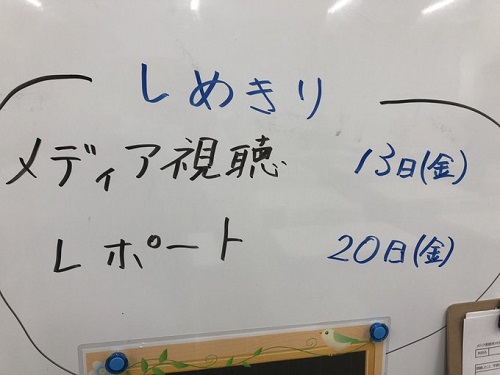 しめきり
メディア視聴 13日(金)
レポート 20日(金)